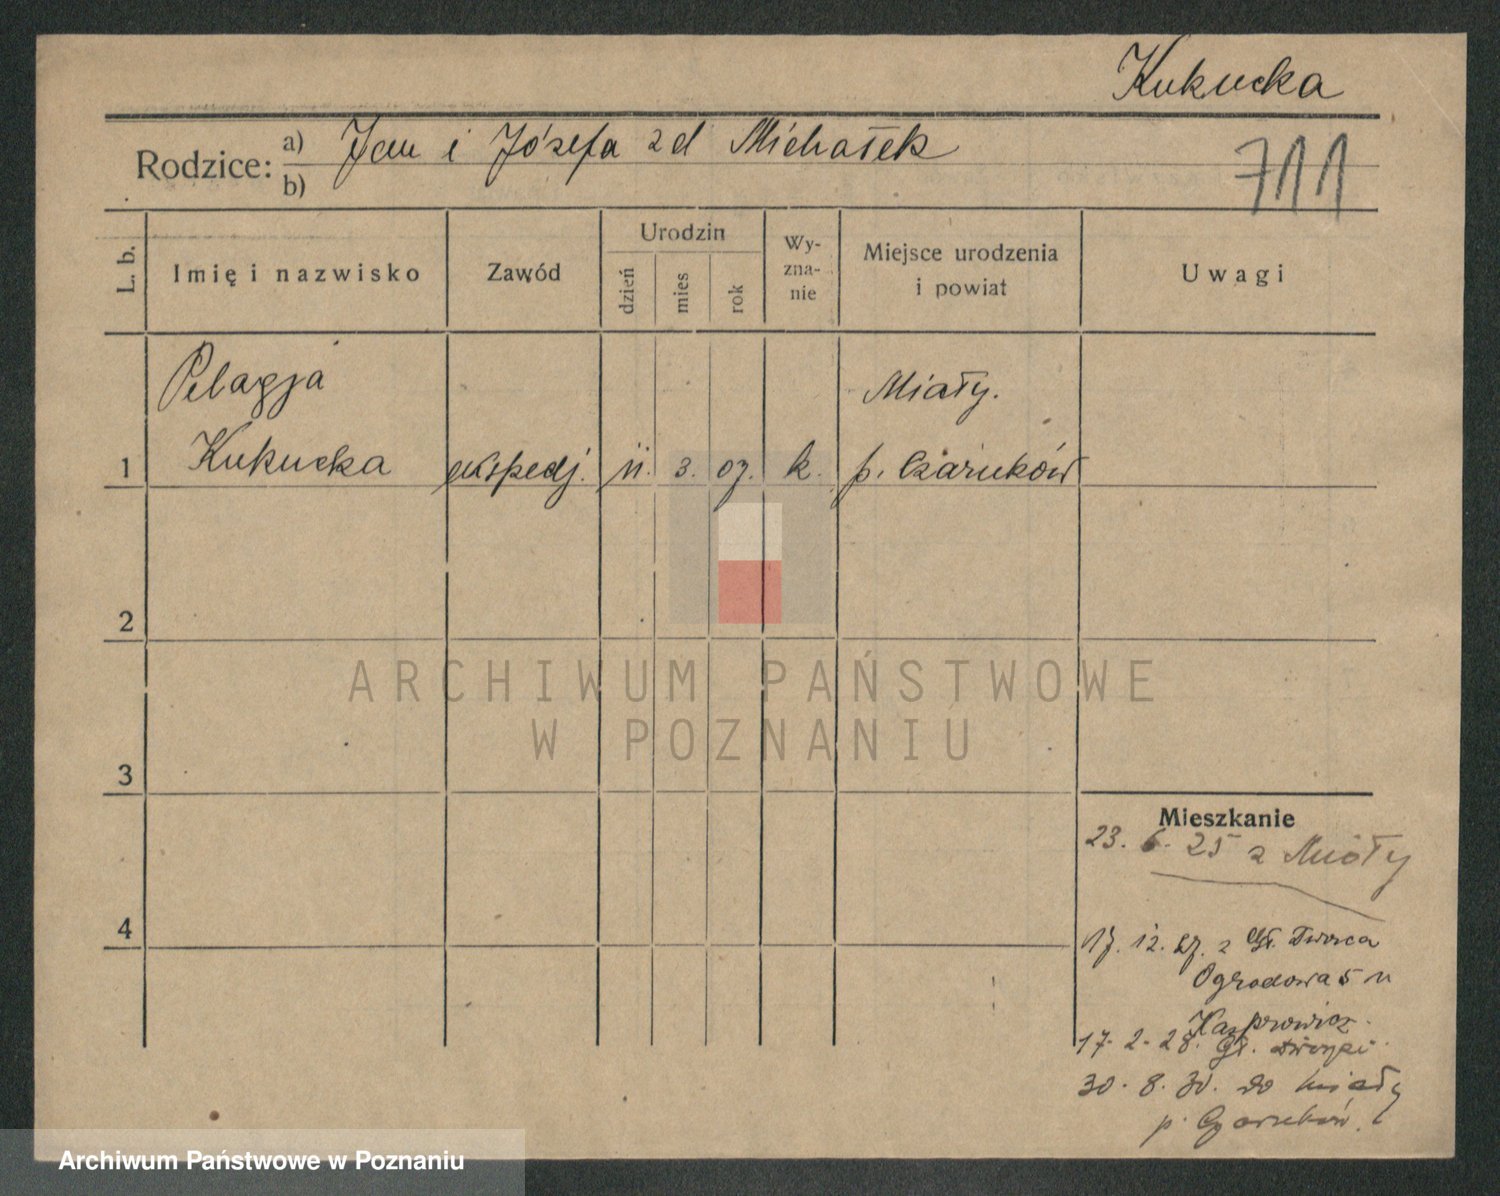 Kukucka
Rodzice: a) Jan i Józefa zd Michałek
b)
711
L. b.
Imię i nazwisko
Zawód
Urodzin
dzień
mies
rok
Wy-
zna-
nie
Miejsce urodzenia
i powiat
Uwagi
Pelagja
Miały.
1 Kukucka ekspedj. 11. 3. 07. k. p. Czarnków
2
3
4
Mieszkanie
23. 6. 25 z Miały
17. 12. 27. z Gł. Dworca
Ogrodowa 5 u
Kasprowicz.
17. 2. 28. Gł.
30. 8. 30. do Miały
p. Czarnków.
ARCHIWUM PAŃSTWOWE
W POZNANIU
Archiwum Państwowe w Poznaniu